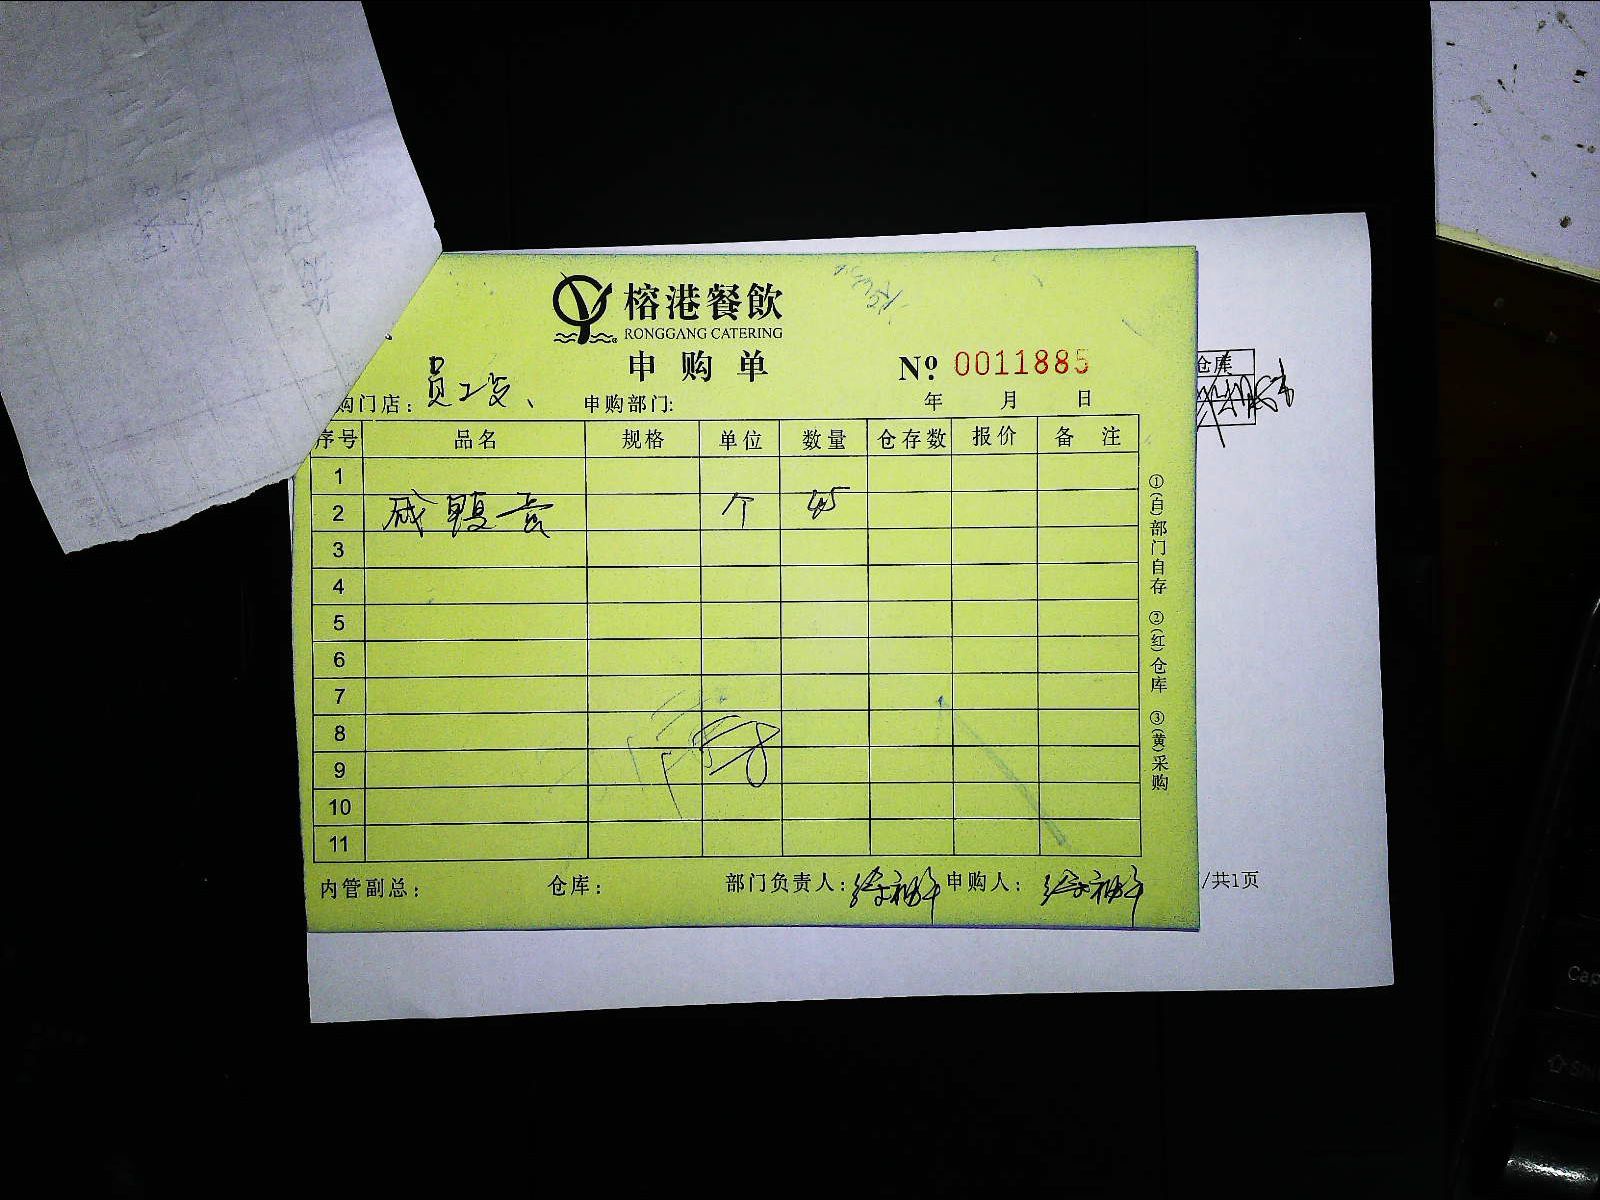 榕港餐飲
RONGGANG CATERING
申购单
№ 0011885
购门店: 员工 申购部门: 年 月 日
序号 品名 规格 单位 数量 仓存数 报价 备 注
1
2 咸鸭蛋 个 45
3
4
5
6
7
8
9
10
11
①(自)部门自存 ②(红)仓库 ③(黄)采购
内管副总: 仓库: 部门负责人: 申购人:
仓库
/共1页
Cap